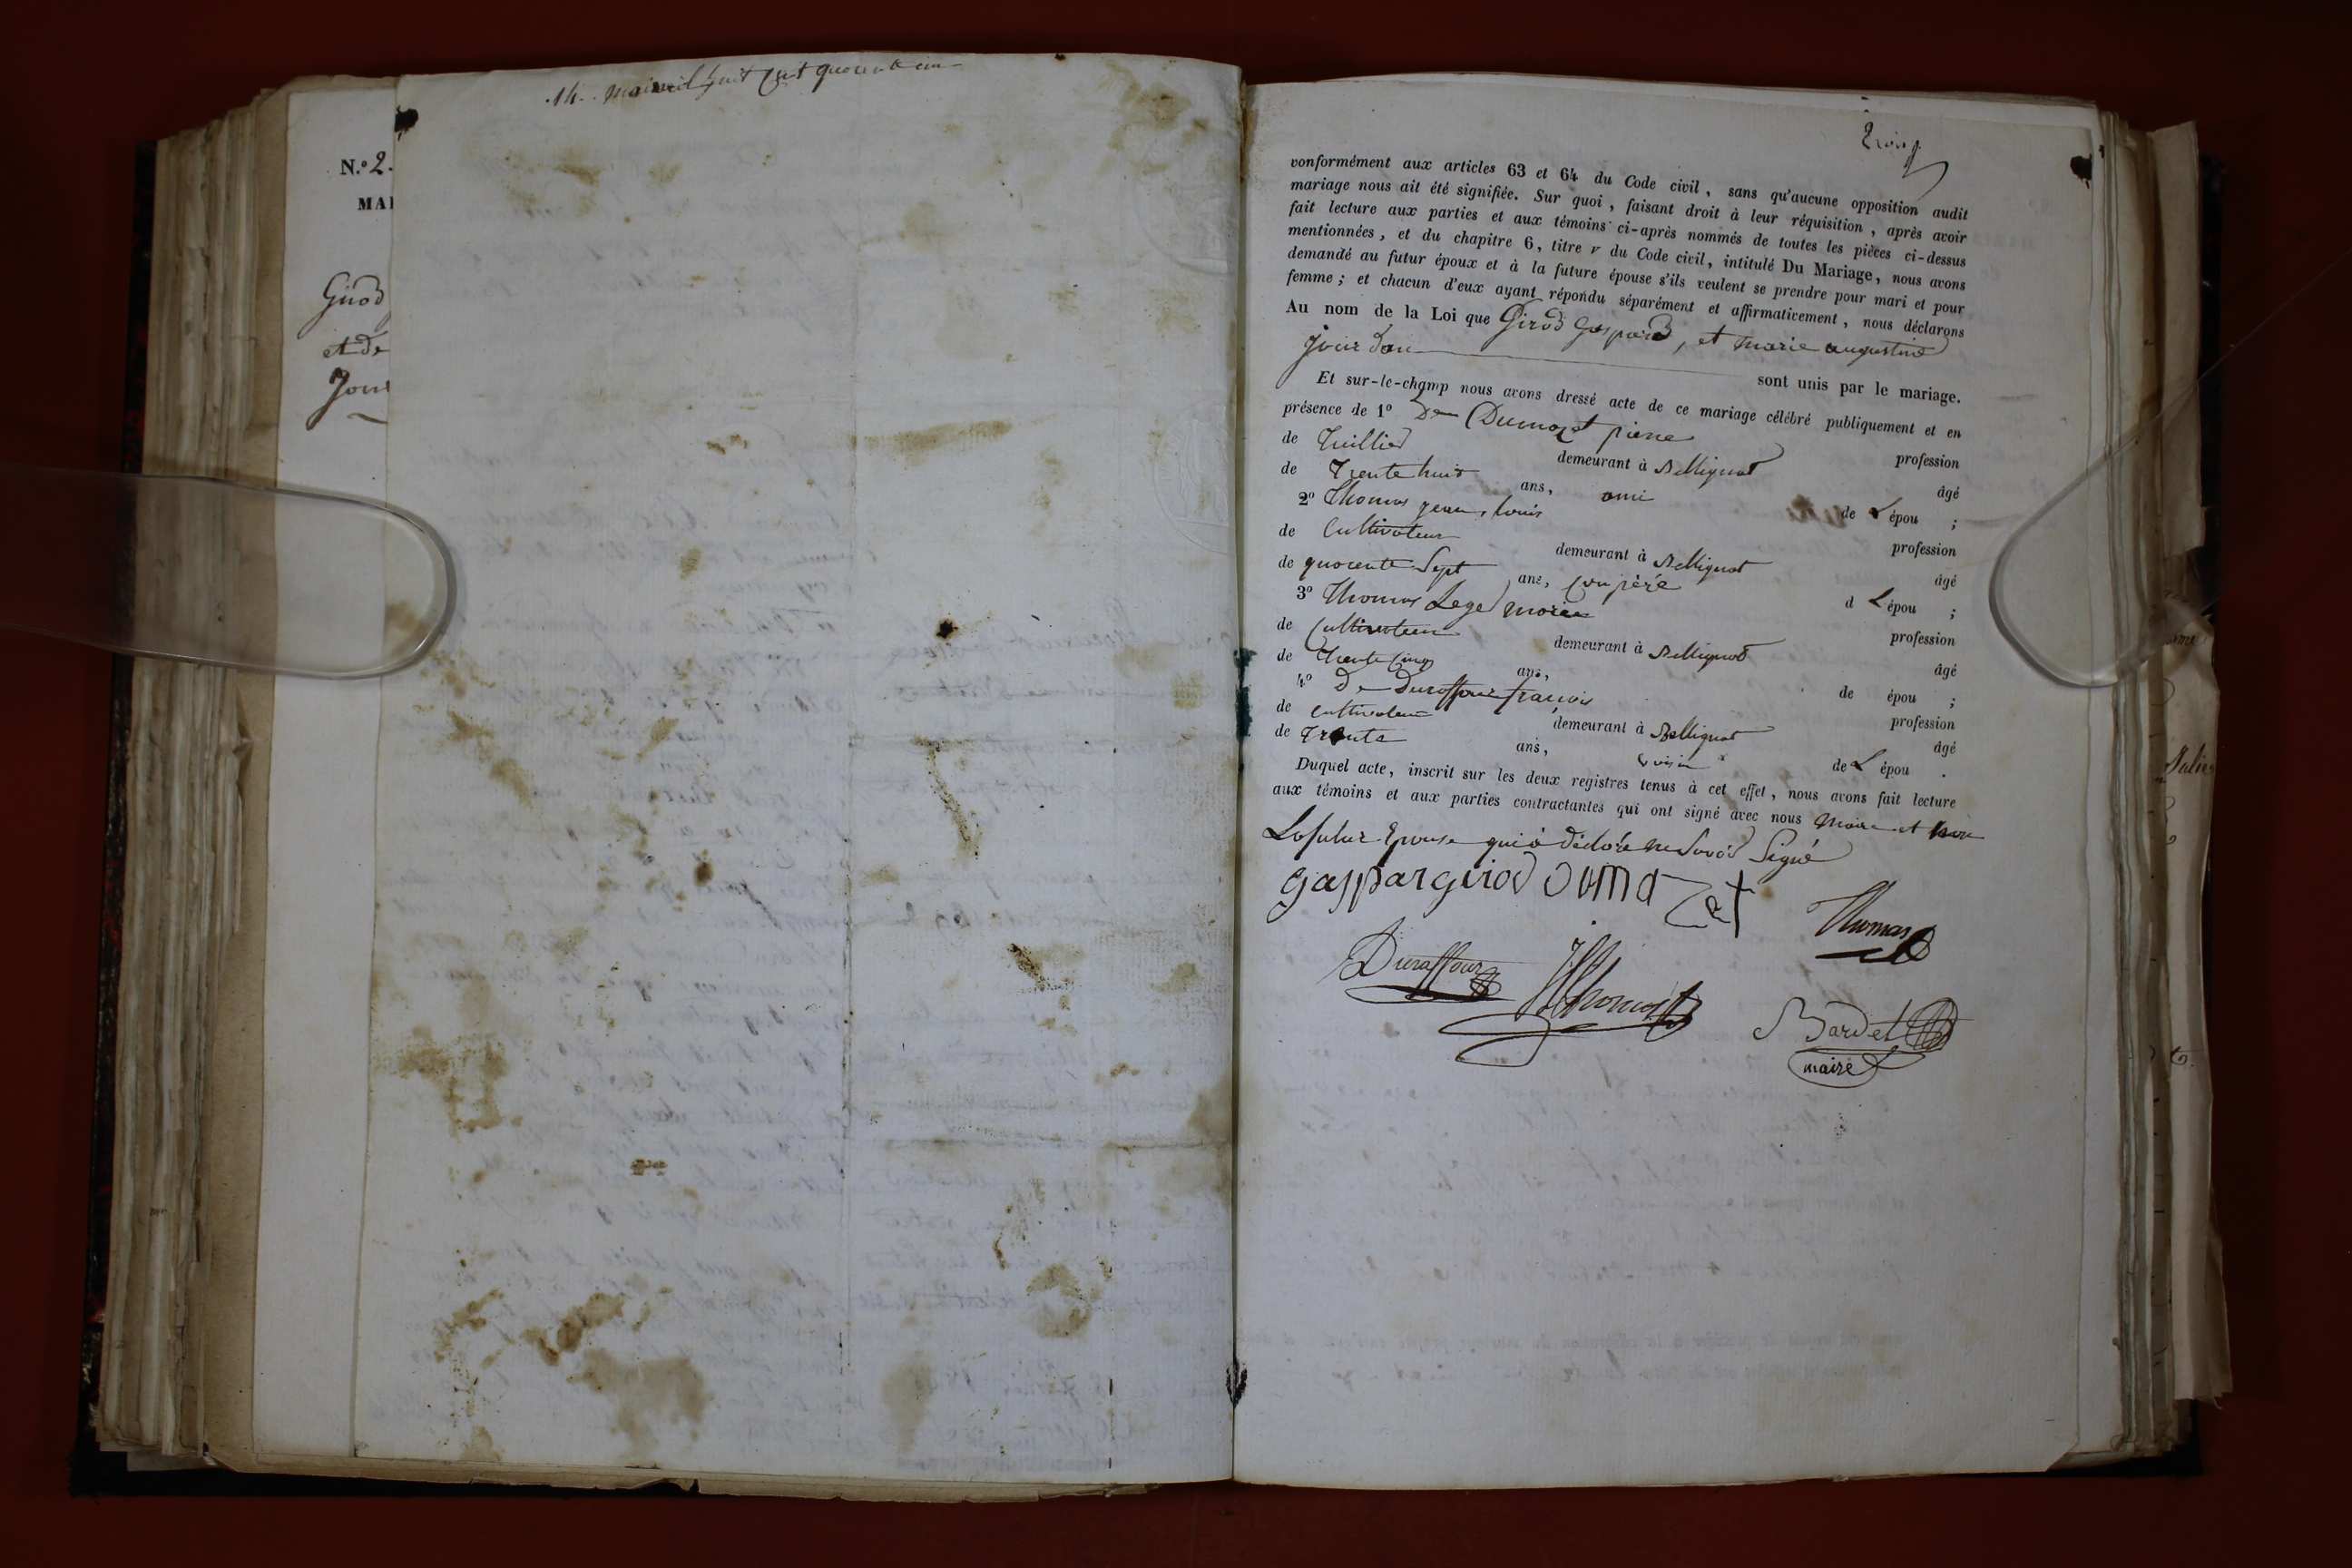 .14. Mai mil huit Cent quarente cin
N.º 2.
MAI
Girod
et de
Jour
Trois
conformément aux articles 63 et 64 du Code civil, sans qu'aucune opposition audit
mariage nous ait été signifiée. Sur quoi, faisant droit à leur réquisition, après avoir
fait lecture aux parties et aux témoins ci-après nommés de toutes les pièces ci-dessus
mentionnées, et du chapitre 6, titre v du Code civil, intitulé Du Mariage, nous avons
demandé au futur époux et à la future épouse s'ils veulent se prendre pour mari et pour
femme; et chacun d'eux ayant répondu séparément et affirmativement, nous déclarons
Au nom de la Loi que Girod Gaspard, et Marie augustine
Jourdan sont unis par le mariage.
Et sur-le-champ nous avons dressé acte de ce mariage célébré publiquement et en
présence de 1º De Dumozat pierre profession
de Tuillier demeurant à Bellignat âgé
de Trente huit ans, ami de L épou ;
2º Thomas jean, louis profession
de Cultivateur demeurant à Bellignat âgé
de quarente Sept ans, Compère d L épou ;
3º Thomas Leger Marie profession
de Cultivateur demeurant à Bellignat âgé
de Trente Cinq ans, de épou ;
4º De Duraffour francois profession
de Cultivateur demeurant à Bellignat âgé
de Trente ans, voisin de L épou .
Duquel acte, inscrit sur les deux registres tenus à cet effet, nous avons fait lecture
aux témoins et aux parties contractantes qui ont signé avec nous Maire et non
La futur Epouse qui à déclaré ne Savoir Signé
gaspar girod Dumazat
Thomas
Duraffour JLThomas
Bardet
maire